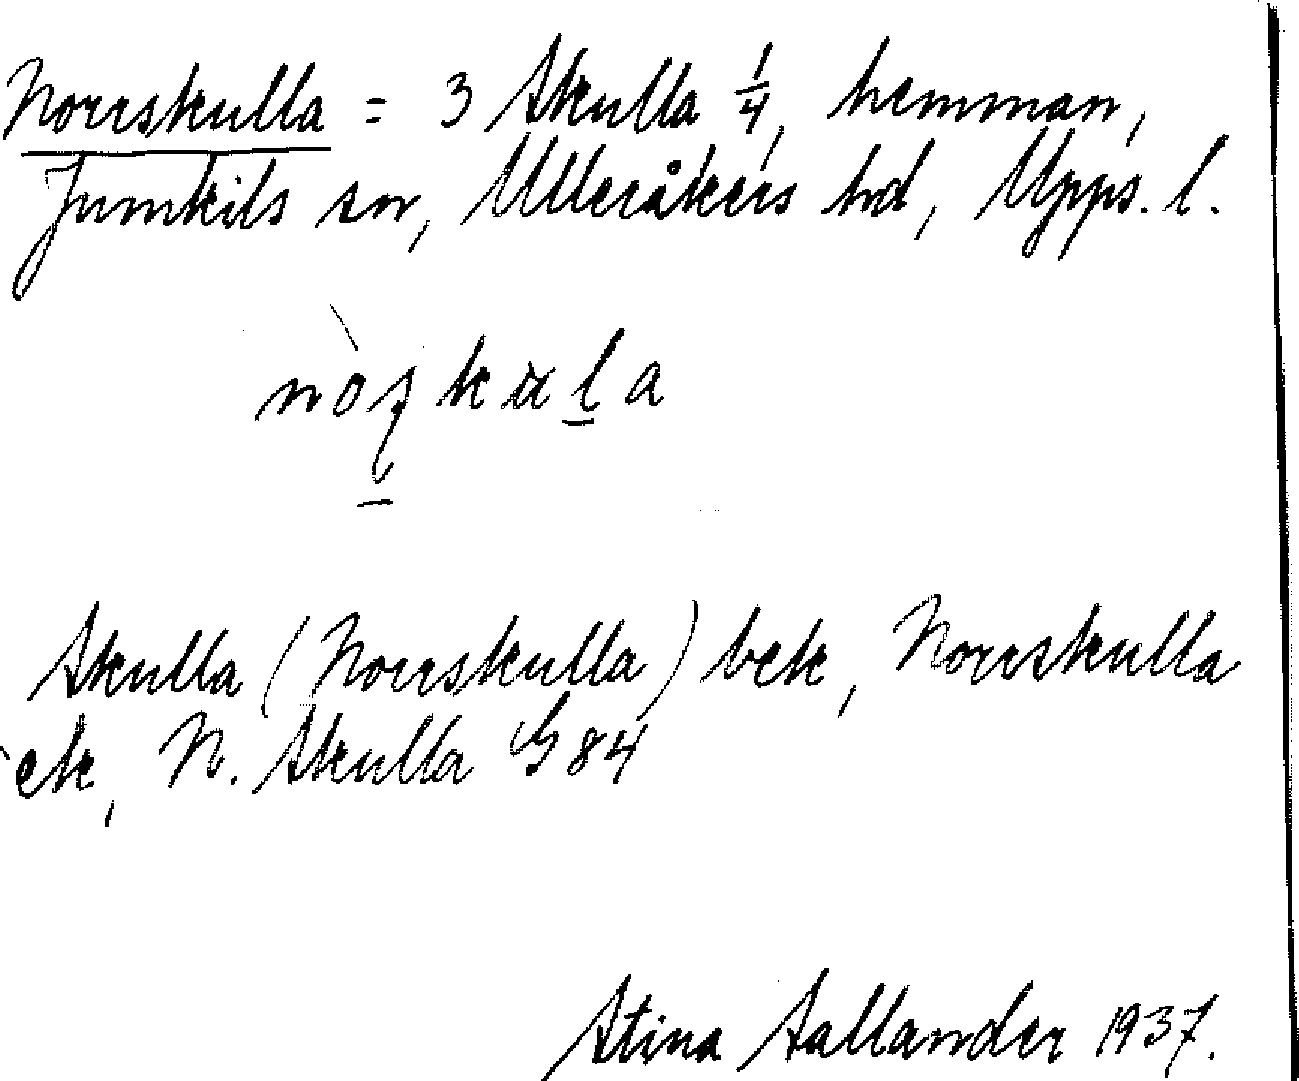 Norrskulla = 3 Skulla 1/4, hemman,
Jumkils sn, Ulleråkers hd, Upps. l.
Skulla (Norrskulla) bek, Norrskulla
ek, N. Skulla G84
Stina Sallander 1937.